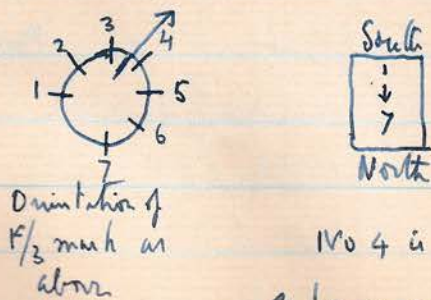 3
2
4
1
5
6
7
Orientation of
F/3 mark as
above
South
1
7
North
No 4 is